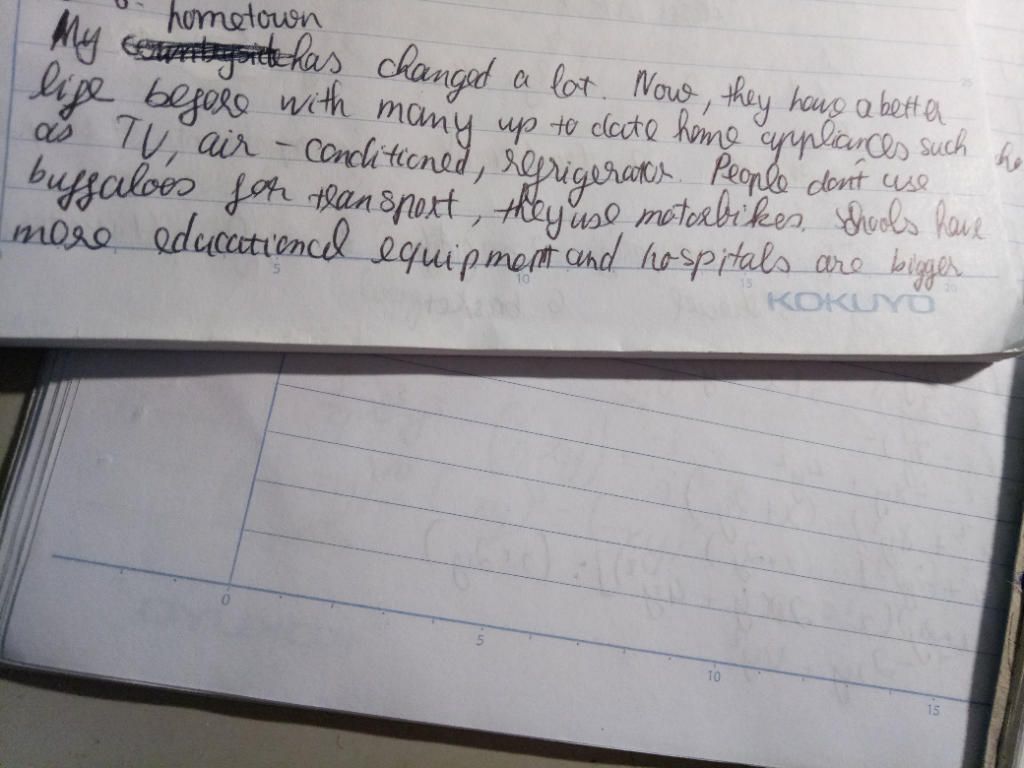 hometown
My countryside has changed a lot. Now, they have a better
life before with many up to date home appliances such
as TV, air-conditioned, refrigerator. People don't use
buffaloes for transport, they use motorbikes. Schools have
more educational equipment and hospitals are bigger
5 10 15 20
KOKUYO
0 5 10 15